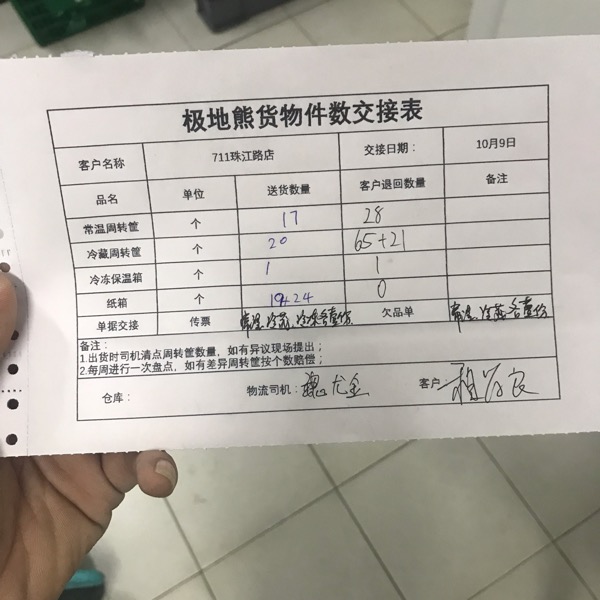 极地熊货物件数交接表
客户名称 711珠江路店 交接日期： 10月9日
品名 单位 送货数量 客户退回数量 备注
常温周转筐 个 17 28
冷藏周转筐 个 20 65+21
冷冻保温箱 个 1 1
纸箱 个 19+24 0
单据交接 传票 欠品单
备注：
1.出货时司机清点周转筐数量，如有异议现场提出；
2.每周进行一次盘点，如有差异周转筐按个数赔偿；
仓库： 物流司机： 客户：